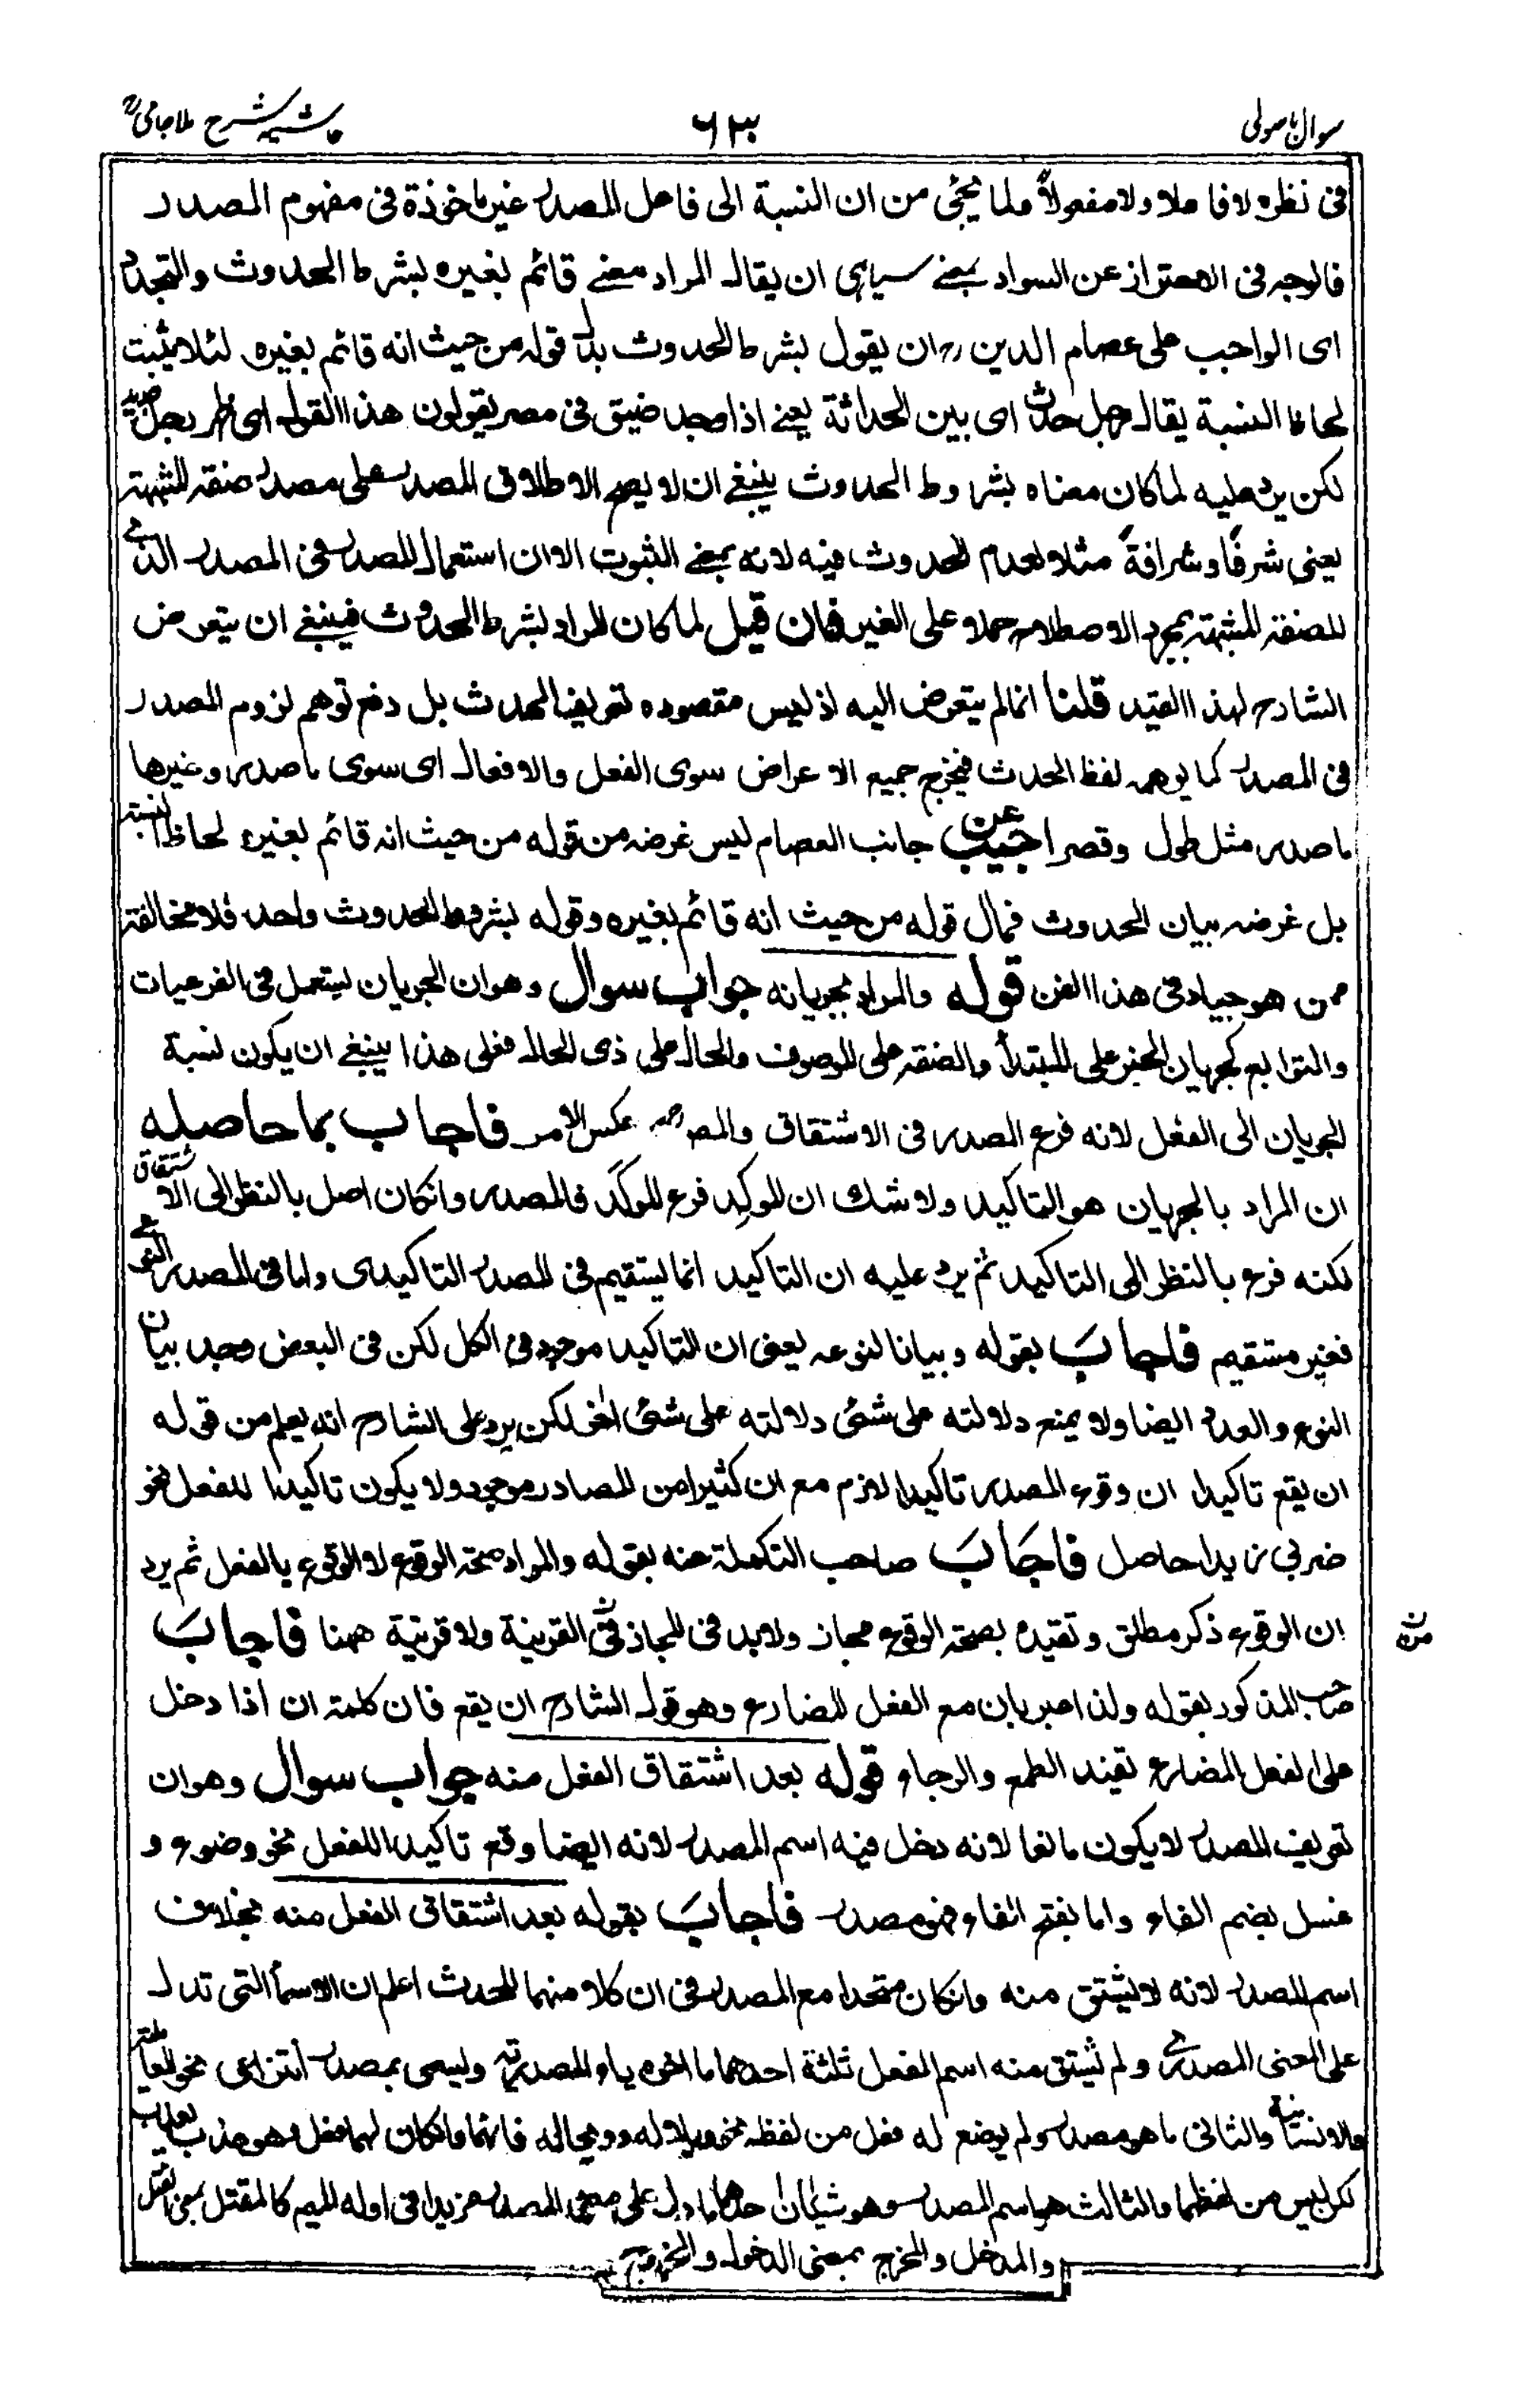 سوال باسولی ۶۳۰ حاشیه شرح ملا جامی
فی نظره لا فاعلا ولا مفعولاً ولما یجئی من ان النسبة الی فاعل المصدر غیر ماخوذة فی مفهوم المصدر
فالوجه فی الاحتراز عن السواد بمعنے سیاہی ان یقال المراد معنے قائم بغیره بشرط الحدوث والتجدد
ای الواجب علی عصام الدین رہ ان یقول بشرط الحدوث بدل قوله من حیث انه قائم بغیره لئلا یثبت
لحاظ النسبة یقال رجل حدث ای بین الحداثة یعنے اذا وجد ضیق فی مصر یقولون هذا القول ای ظهر رجل جدید
لکن یرد علیه لما کان معناه بشروط الحدوث ینبغے ان لا یصح الاطلاق المصدر علی مصدر صفة المشبهة
یعنی شرفًا وشرافةً مثلا لعدم الحدوث فیه لانه بمعنے الثبوت الا ان استعمال المصدر فی المصدر الذی
للصفة المشبهة بمجرد الاصطلاح حملا علی الغیر فان قیل لما کان المراد بشرط الحدوث فینبغے ان یتعرض
الشارح لهذا القید قلنا انما لم یتعرض الیه اذ لیس مقصوده تعریف الحدث بل دفع توهم لزوم المصدر
فی المصدر کما یوهمه لفظ الحدث فیخرج جمیع الاعراض سوی الفعل والافعال ای سوی ما صدر وغیرها
ما صدر مثل طول وقصر اجیب عن جانب العصام لیس غرضه من قوله من حیث انه قائم بغیره لحاظ النسبة
بل غرضه بیان الحدوث فمال قوله من حیث انه قائم بغیره وقوله بشرط الحدوث واحد فلا مخالفة
ممن هو جیاد فی هذا الفن قوله والمراد بجریانه جواب سوال وهو ان الجریان یستعمل فی الفرعیات
والتوابع کجریان الخبر علی المبتدأ والصفة علی الموصوف والحال علی ذی الحال فعلی هذا ینبغے ان یکون نسبة
الجریان الی الفعل لانه فرع المصدر فی الاشتقاق والمصرح عکس الامر فاجاب بما حاصله
ان المراد بالجریان هو التاکید ولا شك ان الموکِد فرع الموکَد فالمصدر وانکان اصل بالنظر الی الاشتقاق
لکنه فرع بالنظر الی التاکید ثم یرد علیه ان التاکید انما یستقیم فی المصدر التاکیدی واما فی المصدر النوعی
فغیر مستقیم فاجابَ بقوله وبیانا لنوعه یعنی ان التاکید موجود فی الکل لکن فی البعض وجد بیان
النوع والعدد ایضا ولا یمنع دلالته علی شئی دلالته علی شئی اخر لکن یرد علی الشارح انه یعلم من قوله
ان یقع تاکیدا ان وقوع المصدر تاکیدا لازم مع ان کثیرا من المصادر موجود ولا یکون تاکیدا للفعل نحو
ضربی زیدا حاصل فاجابَ صاحب التکملة عنه بقوله والمراد صحة الوقوع لا الوقوع بالفعل ثم یرد
ان الوقوع ذکر مطلق وتقیده بصحة الوقوع مجاز ولابد فی المجاز من القرینة ولا قرینة ههنا فاجابَ
صاحب المذکور بقوله ولذا عبر بان مع الفعل المضارع وهو قول الشارح ان یقع فان کلمة ان اذا دخل
علی الفعل المضارع تفید الطمع والرجاء قوله بعد اشتقاق الفعل منه جواب سوال وهو ان
تعریف المصدر لا یکون مانعا لانه دخل فیه اسم المصدر لانه ایضا وقع تاکیدا للفعل نحو وضوء و
غسل بضم الفاء واما بفتح الفاء فهو مصدر فاجابَ بقوله بعد اشتقاق الفعل منه بخلاف
اسم المصدر لانه لا یشتق منه وانکان متحدا مع المصدر فی ان کلا منهما للحدث اعلم ان الاسماء التی تدل
علی المعنی المصدری ولم یشتق منه اسم الفعل ثلثة احدهما ما اخره یاء المصدریة ویسمی بمصدر انتزاعی نحو العالمیة
والانسانیة والثانی ما هو مصدر ولم یوضع له فعل من لفظه نحو ویلا له وویحا له فانهما وانکان لهما فعل وهو عذب یعذب
لکن لیس من لفظهما والثالث هو اسم المصدر وهو شیئان احدهما ما دل علی معنی المصدر مزیدا فی اوله المیم کالمقتل بمعنی القتل
والمدخل والمخرج بمعنی الدخول والخروج